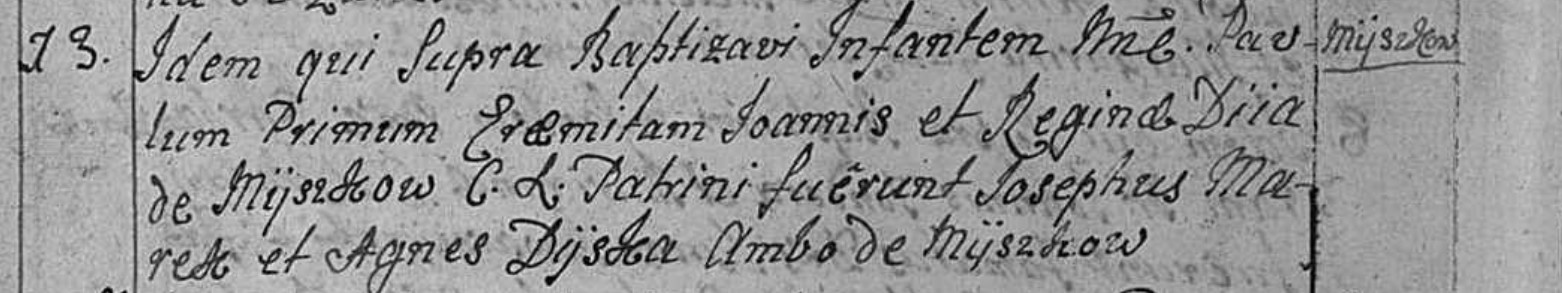 13. Idem qui Supra Baptizavi Infantem Nn̄e. Pav- Mijszkow
lum Primum Eræmitam Joannis et Reginæ Diia
de Mijszkow C. L. Patrini fuerunt Josephus Ma-
rek et Agnes Dijska Ambo de Mijszkow